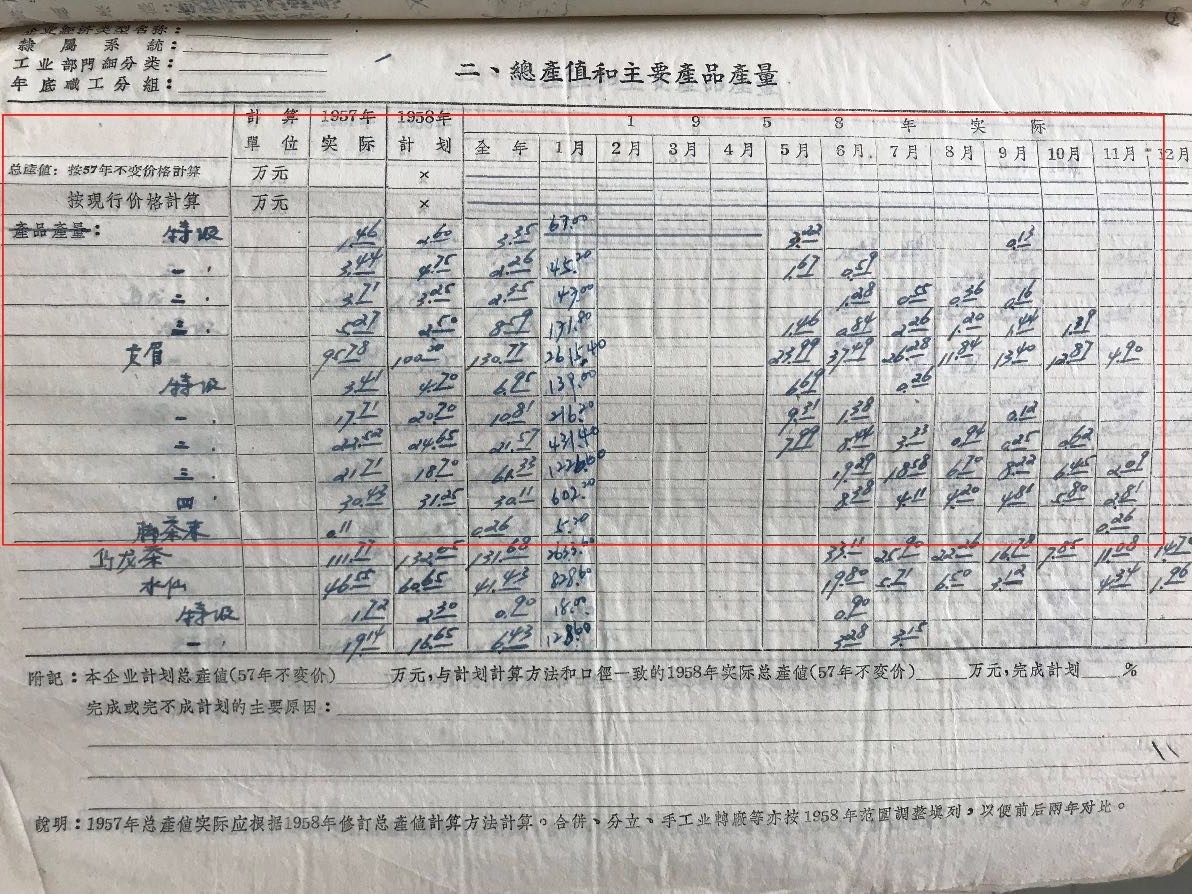 企业經济类型名称：
隸屬系統：
工业部門細分类：
年底职工分組：
二、總產值和主要產品產量
計算單位 1957年实际 1958年計划 1958年实际
全年 1月 2月 3月 4月 5月 6月 7月 8月 9月 10月 11月 12月
总產值：按57年不变价格計算 万元 ×
按現行价格計算 万元 ×
產品產量： 特级 1.46 2.60 3.35 67.00 3.22 0.13
一〃 3.44 4.75 2.26 45.20 1.67 0.59
二〃 3.71 3.25 2.35 47.00 1.28 0.55 0.36 0.16
三〃 5.27 2.50 8.59 171.80 1.46 0.84 2.26 1.20 1.44 1.39
支眉 95.78 100.20 130.77 2615.40 23.99 37.49 26.28 11.84 13.40 12.87 4.90
特级 3.41 4.70 6.95 139.00 6.69 0.26
一〃 17.71 20.70 10.81 216.20 9.31 1.38 0.12
二〃 22.52 24.65 21.57 431.40 7.99 8.44 3.33 0.94 0.25 0.62
三〃 21.71 18.70 61.33 1226.60 19.29 18.58 6.70 8.22 6.45 2.09
四 30.43 31.25 30.11 602.20 8.38 4.11 4.20 4.81 5.80 2.81
茶末 0.11 0.26 5.20 0.26
乌龙茶 111.77 132.05 131.68 2633.60 33.11 25.90 22.26 16.78 7.85 11.08 14.70
水仙 46.55 60.65 41.43 828.60 19.80 5.71 6.50 3.12 4.34 1.96
特级 1.72 2.30 0.90 18.00 0.90
一〃 19.14 16.65 6.43 128.60 3.28 3.15
附記：本企业計划总產值(57年不变价) 万元，与計划計算方法和口徑一致的1958年实际总產值(57年不变价) 万元，完成計划 %
完成或完不成計划的主要原因：
說明：1957年总產值实际应根据1958年修訂总產值計算方法計算。合併、分立、手工业轉廠等亦按1958年范圍調整填列，以便前后兩年对比。